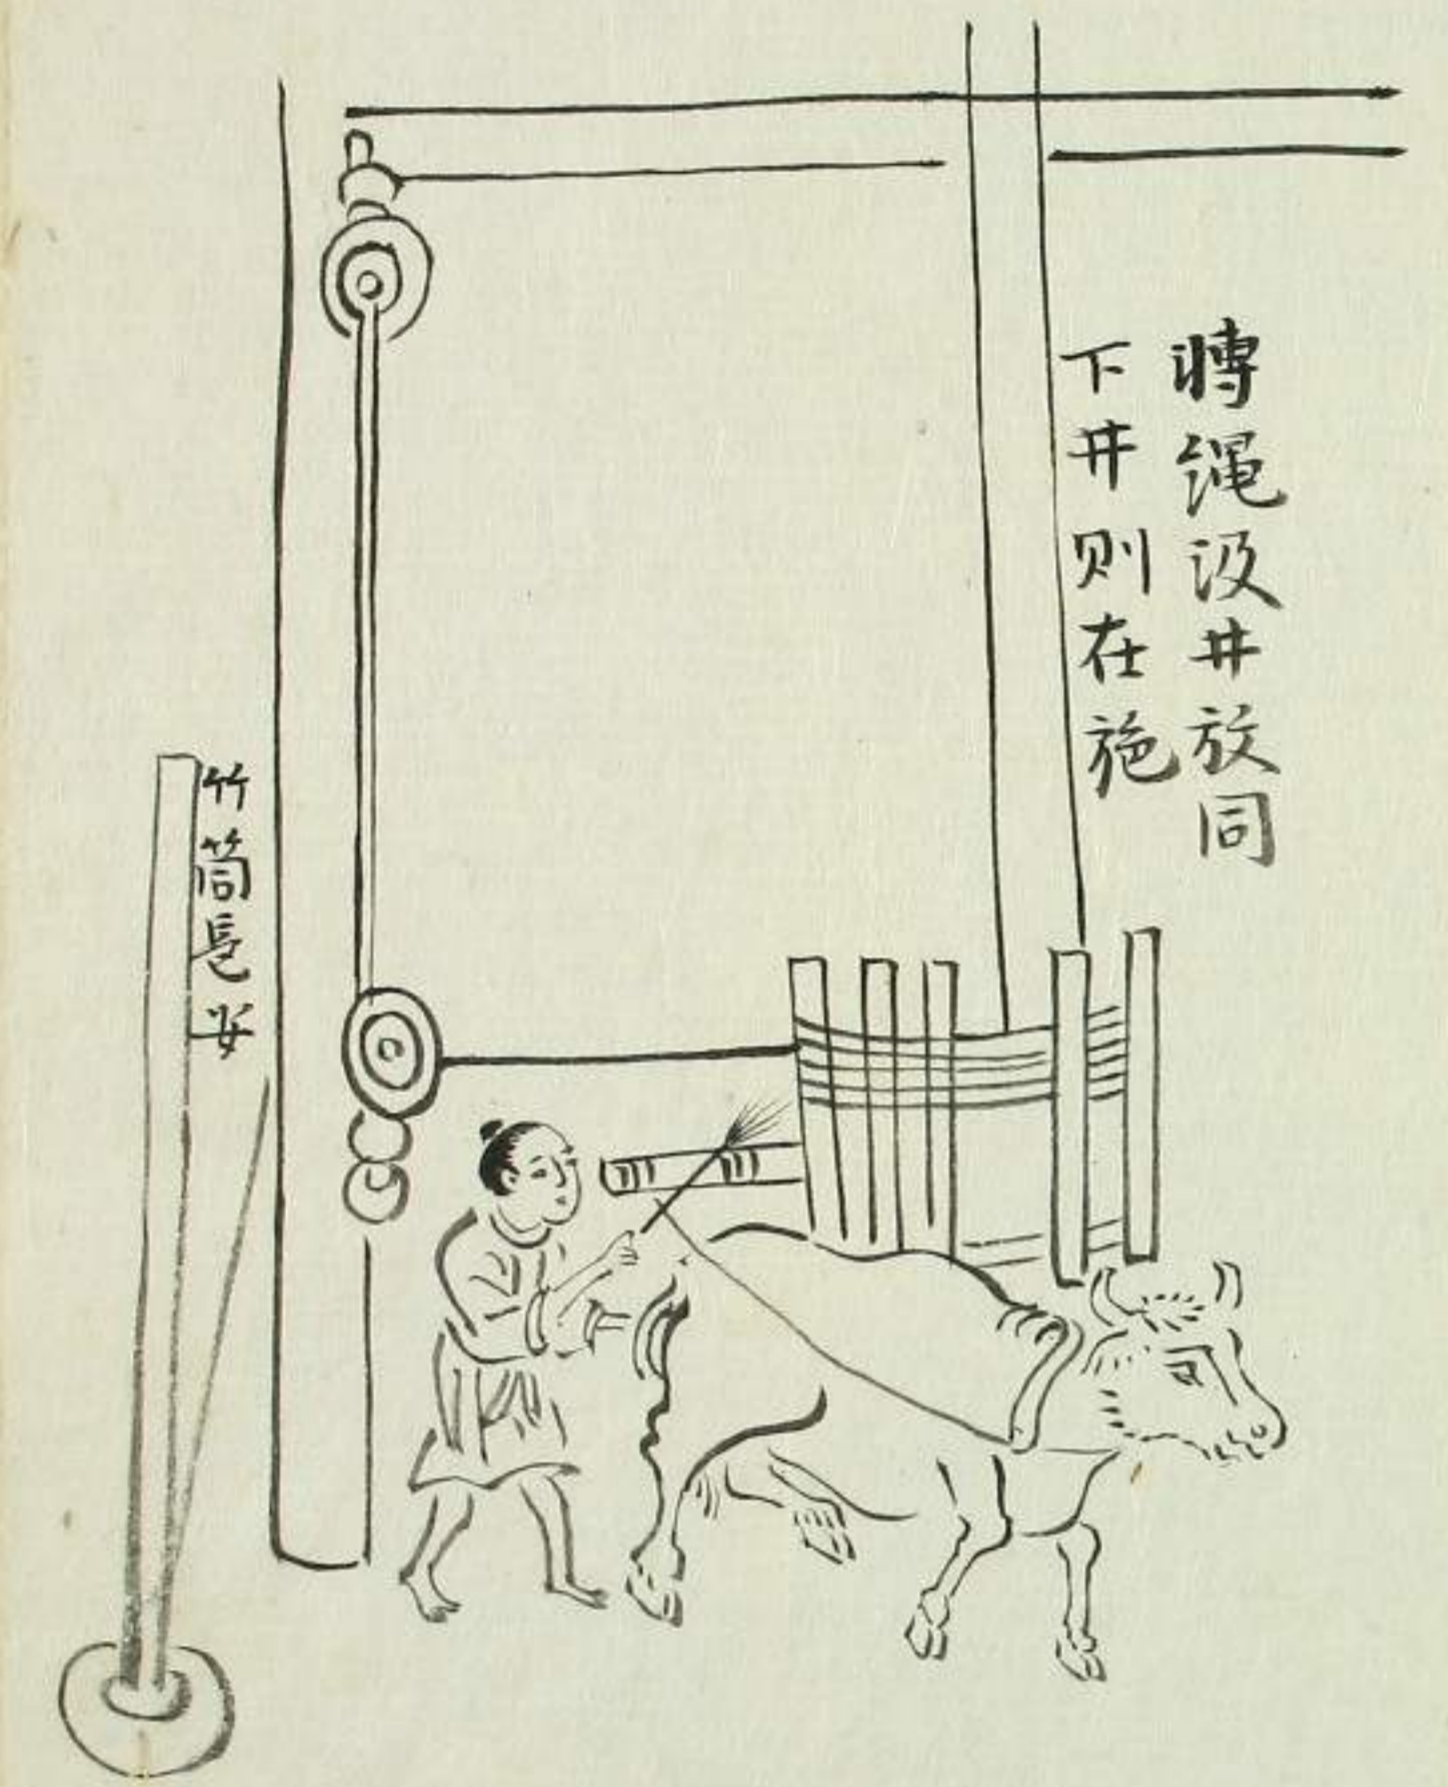 轉绳汲井放同
下井则在施
竹筒長安